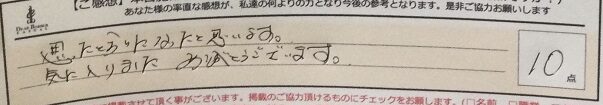 【ご感想】
あなた様の率直な感想が、私達の何よりの力となり今後の参考となります。是非ご協力お願いします
思ったとおりになったと思います。
気に入りました ありがとうございます。
10点
掲載させて頂く事がございます。掲載のご協力頂けるものにチェックをお願いします。(□名前